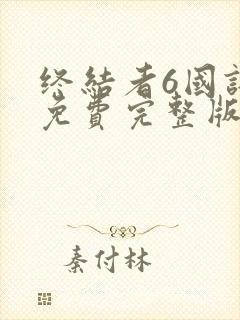 终結者6國
免費完整版
秦付林